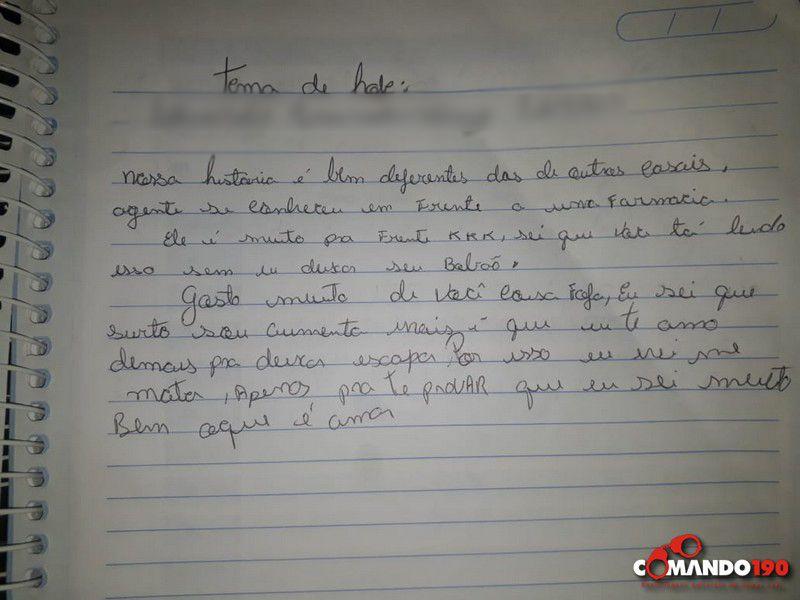 tema de hole:
nossa historia é bem diferentes das de outros casais,
agente se conheceu em Frente a uma Farmacia.
Ele é muito pra Frente KKK, sei que você tá lendo
isso sem eu deixar seu Babaõ,
Gosto muito de você coisa Fofa, Eu sei que
surto sou aumenta mais é que eu te amo
demais pra deixar escapar, Por isso eu irei me
matar, Apenas pra te PROVAR que eu sei muito
Bem oque é amor
COMANDO190